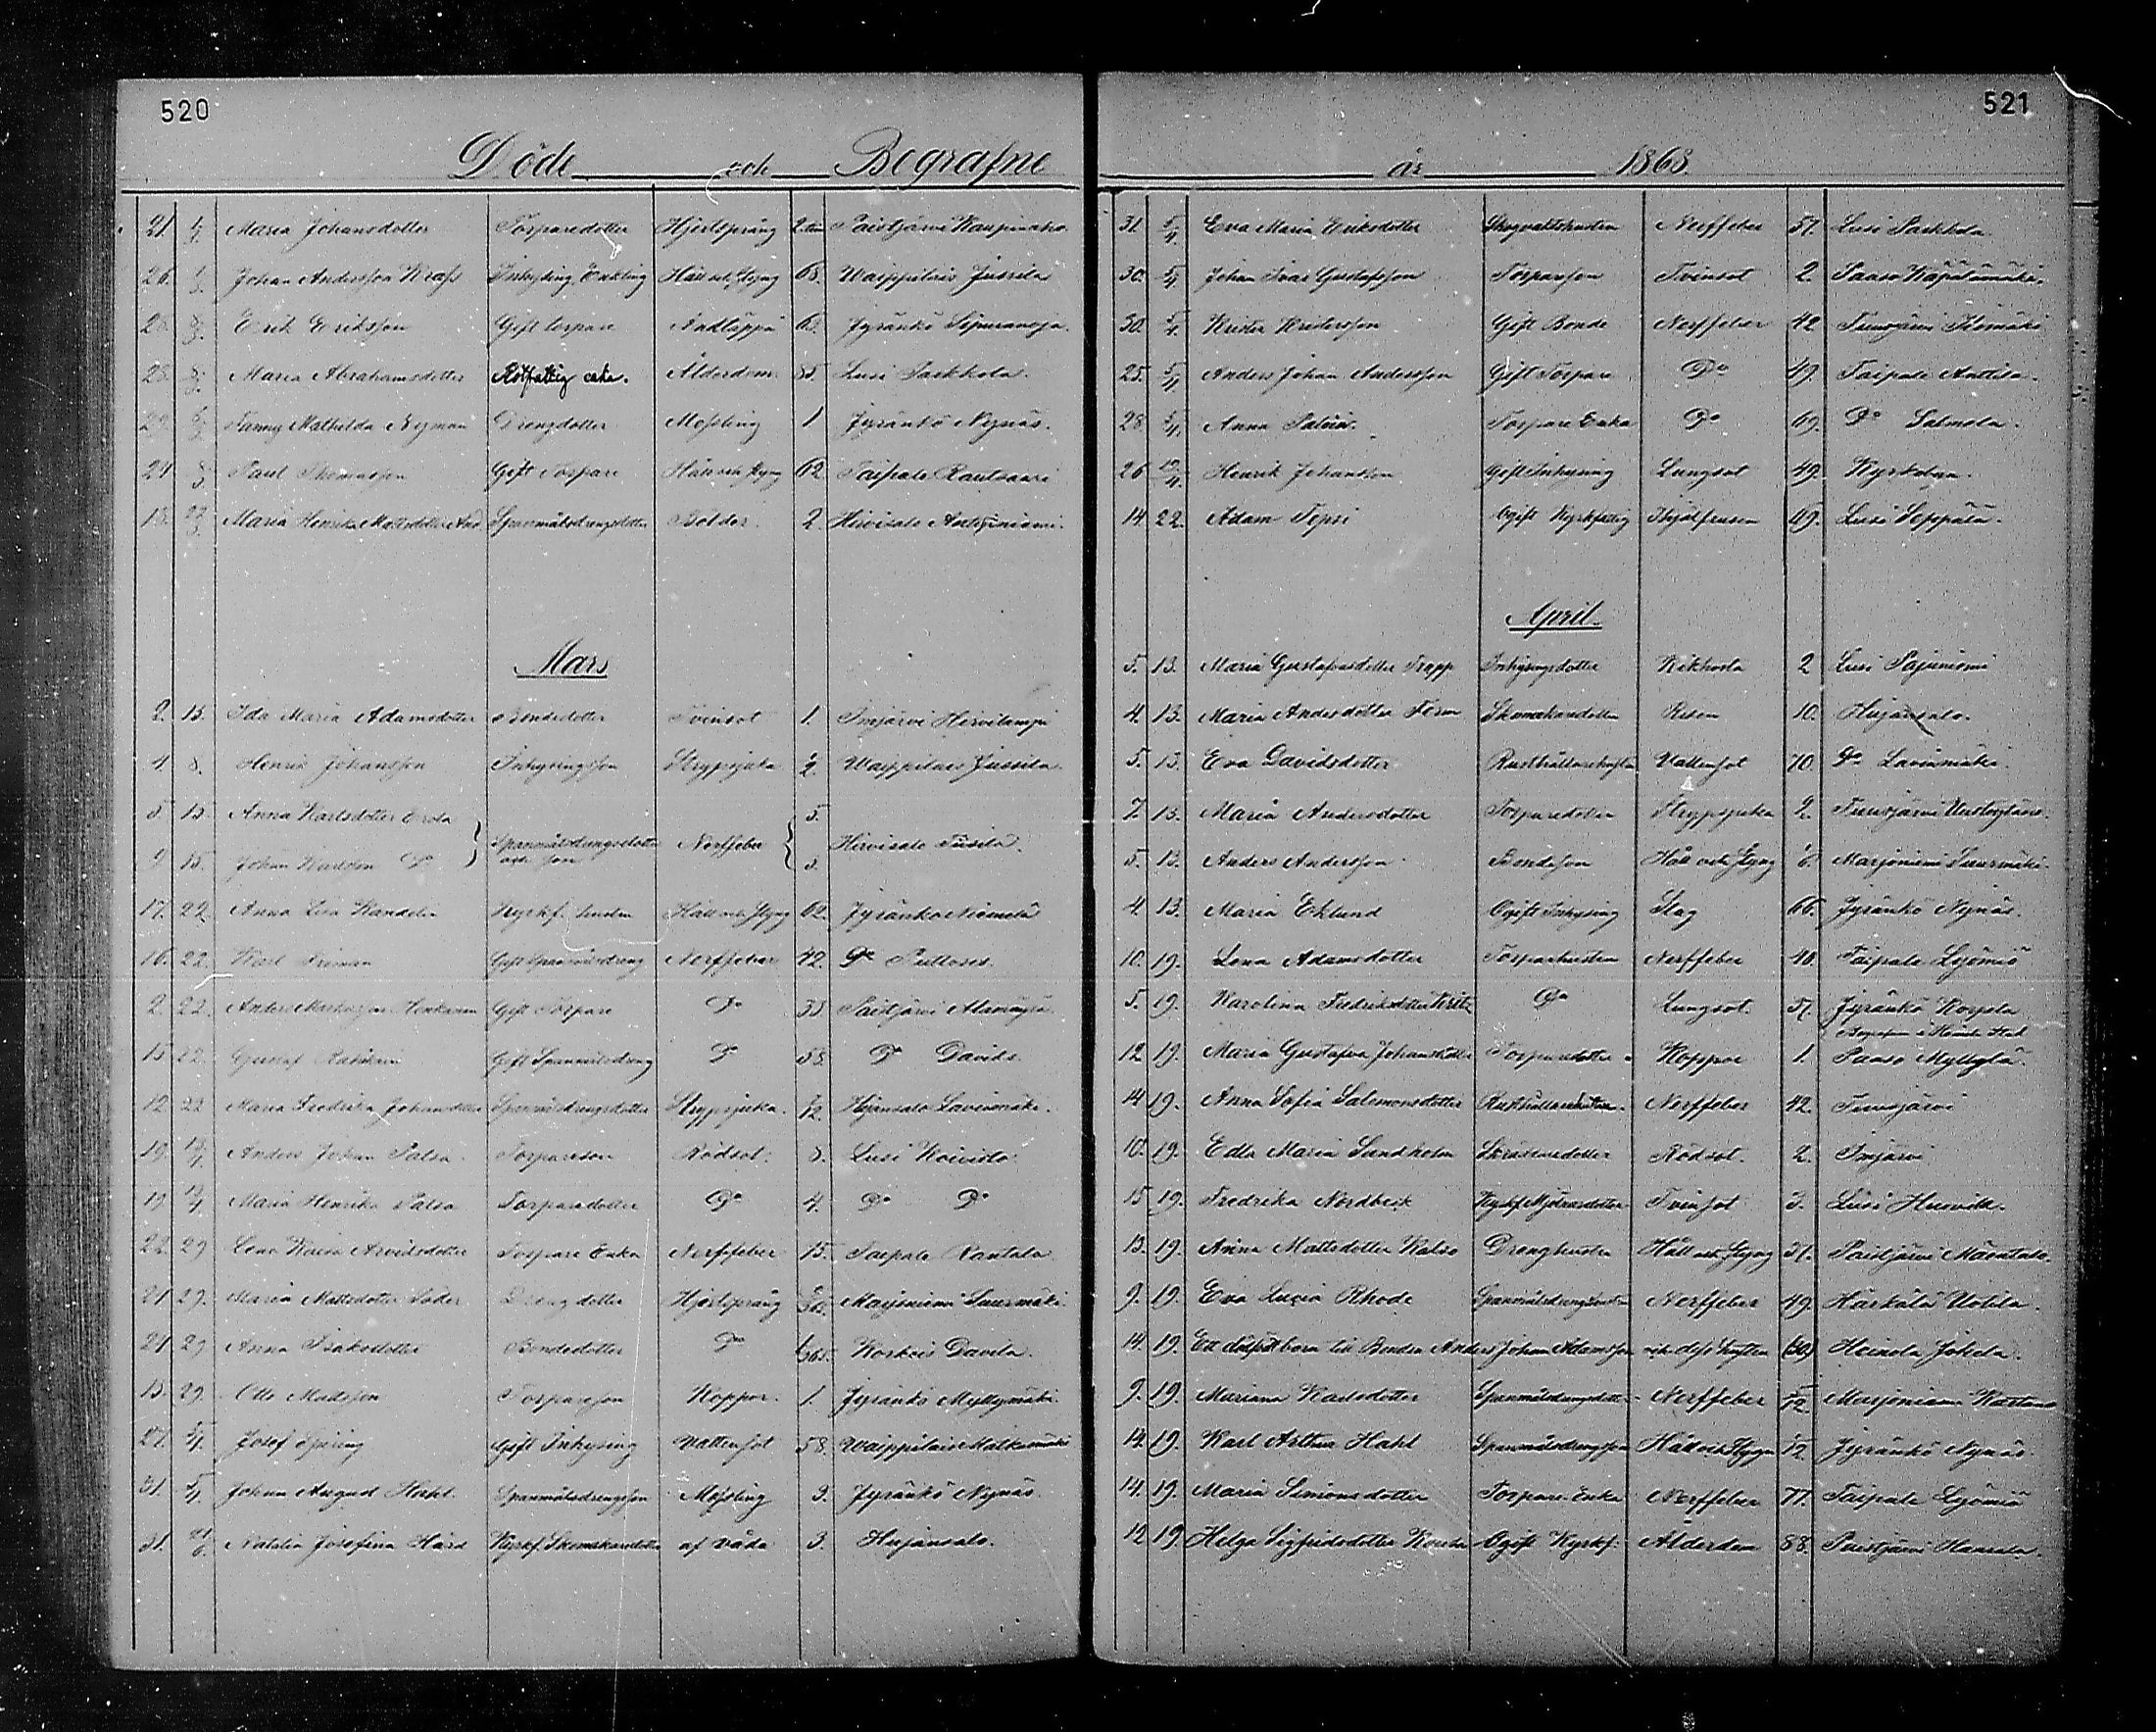 520
Döde och Begrafne
21. 1/3. Maria Johansdotter Torparedotter Hjertsprång Paistjärvi
26. 1/3. Johan Andersson Inhysing Enkling Håll och Styng 68. Waippilais Jussila
28. 8/3. Erik Eriksson Gift torpare Andtäppa 63. Jyränkö
28. 8/3. Maria Abrahamsdotter enka. Ålderdom 85. Lusi Paikkola.
29. 8/3. Fanny Mathilda Nyman Drengdotter Messling 1 Jyränkö Nynäs.
24 8/3 Paul Thomasson Gift Torpare Håll och Styng 62 Taipale Rautsaari
13. 22/3. Maria Henrika Mattsdotter Spanmålsdrengsdotter Bölder. 2. Hirvisalo Anttinniemi.
Mars
2. 15. Ida Maria Adamsdotter Bondedotter Tvinsot 1. Imjärvi Hirvilampi
4. 8. Henrik Johansson Inhysingsson Strypsjuka Waippilais Jussila.
5 15. Anna Karlsdotter 5.
Spanmålsdrengsdotter och son Nerffeber Hirvisalo
9 15. Johan Karlsson Do 3.
17. 22. Anna Lisa Kyrkf. hustru Håll och Styng 62. Jyränkö Niemelä
16. 22. Karl Gift Spanmålsdreng Nerffeber 42. Do
2. 22. Anders Gift Torpare Do 33 Paistjärvi
15 22. Gustaf Gift Spanmålsdreng Do 58. Do Davids.
12 22 Maria Fredrika Johansdotter Spanmålsdrengsdotter Strypsjuka. Hujansalo Lavinmäki.
19. 13/4. Anders Johan Palsa. Torpareson Rödsot. 8. Lusi Koivisto.
19 13/4. Maria Henrika Palsa Torparedotter Do 4. Do Do
22. 29 Lena Kaisa Arvidsdotter Torpare Enka Nerffeber 75. Taipale Rantala.
21 29. Maria Mattsdotter Söder Drengdotter Hjertsprång Marjoniemi Suurmäki.
21 29 Anna Isaksdotter Bondedotter Do Korkeis Davila.
15. 29. Otto Madsson Torpareson Koppor. 1. Jyränkö Myllymäki.
27. 5/4. Josef Spring Gift Inhysing Vattensot 58. Waippilais
31. 5/4. Johan August Hahl. Spanmålsdrengsson Messling 3. Jyränkö Nynäs.
31. Natalia Josefina Hård Kyrkf. Skomakaredotter af våda 3. Hujansalo.
521
år 1868.
31. 5/4. Eva Maria Eriksdotter Nerffeber 57. Lusi Paikkola.
30. 5/4. Johan Ivar Gustafsson Torpareson Tvinsot 2. Paaso
30. 5/4. Krister Kristersson Gift Bonde Nerffeber 42
25. 5/4 Anders Johan Andersson Gift Torpare Do 49. Taipale Anttila.
28 5/4. Anna Torpare Enka Do 69. Do Salmela.
26 Henrik Johansson Gift Inhysing Lungsot 49. Kyrkobyn.
14 22. Adam Ogift Kyrkfattig Ihjälfrusen 69. Lusi Seppälä.
April.
5. 13. Maria Gustafsdotter Trapp Inhysingsdotter Kikhosta 2 Lusi Pajuniemi
4. 13. Maria Andersdotter Skomakaredotter 10. Hujansalo.
5. 13. Eva Davidsdotter Rusthållarehustru Vattensot 70. Do Lavinmäki.
7. 13. Maria Andersdotter Torparedotter Strypsjuka 2.
5. 13. Anders Andersson Bondeson Håll och Styng 6 Marjoniemi Suurmäki.
4. 13. Maria Eklund Ogift Inhysing Slag 66. Jyränkö Nynäs.
10. 19. Lena Adamsdotter Torparehustru Nerffeber 40. Taipale Lyömiö
5. 19. Karolina Fredriksdotter Do Lungsot. 57. Jyränkö Korpela
12 19. Maria Gustafva Johansdotter Torparedotter Koppor 1. Paaso Myllylä.
14 19. Anna Sofia Salomonsdotter Rusthållarehustru Nerffeber 42.
10. 19. Edla Maria Sundholm Skräddaredotter Rödsot. 2. Imjärvi
15 19. Fredrika Nordbeck Kyrkf. Mjölnaredotter Tvinsot 3. Lusi
13. 19. Anna Mattsdotter Drenghustru Håll och Styng 51. Paistjärvi Mäentalo.
9. 19. Eva Lucia Rhode Spanmålsdrengshustru Nerffeber 49. Härkälä Uotila.
14. 19. Ett dödfödt barn till Bonden Anders Johan Adamsson och dess hustru (30) Heinola Jokela.
9. 19. Mariana Karlsdotter Spanmålsdrengsdotter Nerffeber Marjoniemi
14. 19. Karl Arthur Hahl Spanmålsdrengsson Håll och Styng Jyränkö Nynäs
14. 19. Maria Simonsdotter Torpare Enka Nerffeber 77. Taipale Lyömiö
12 19. Helga Sigfridsdotter Ogift Kyrkf. Ålderdom 88. Paistjärvi